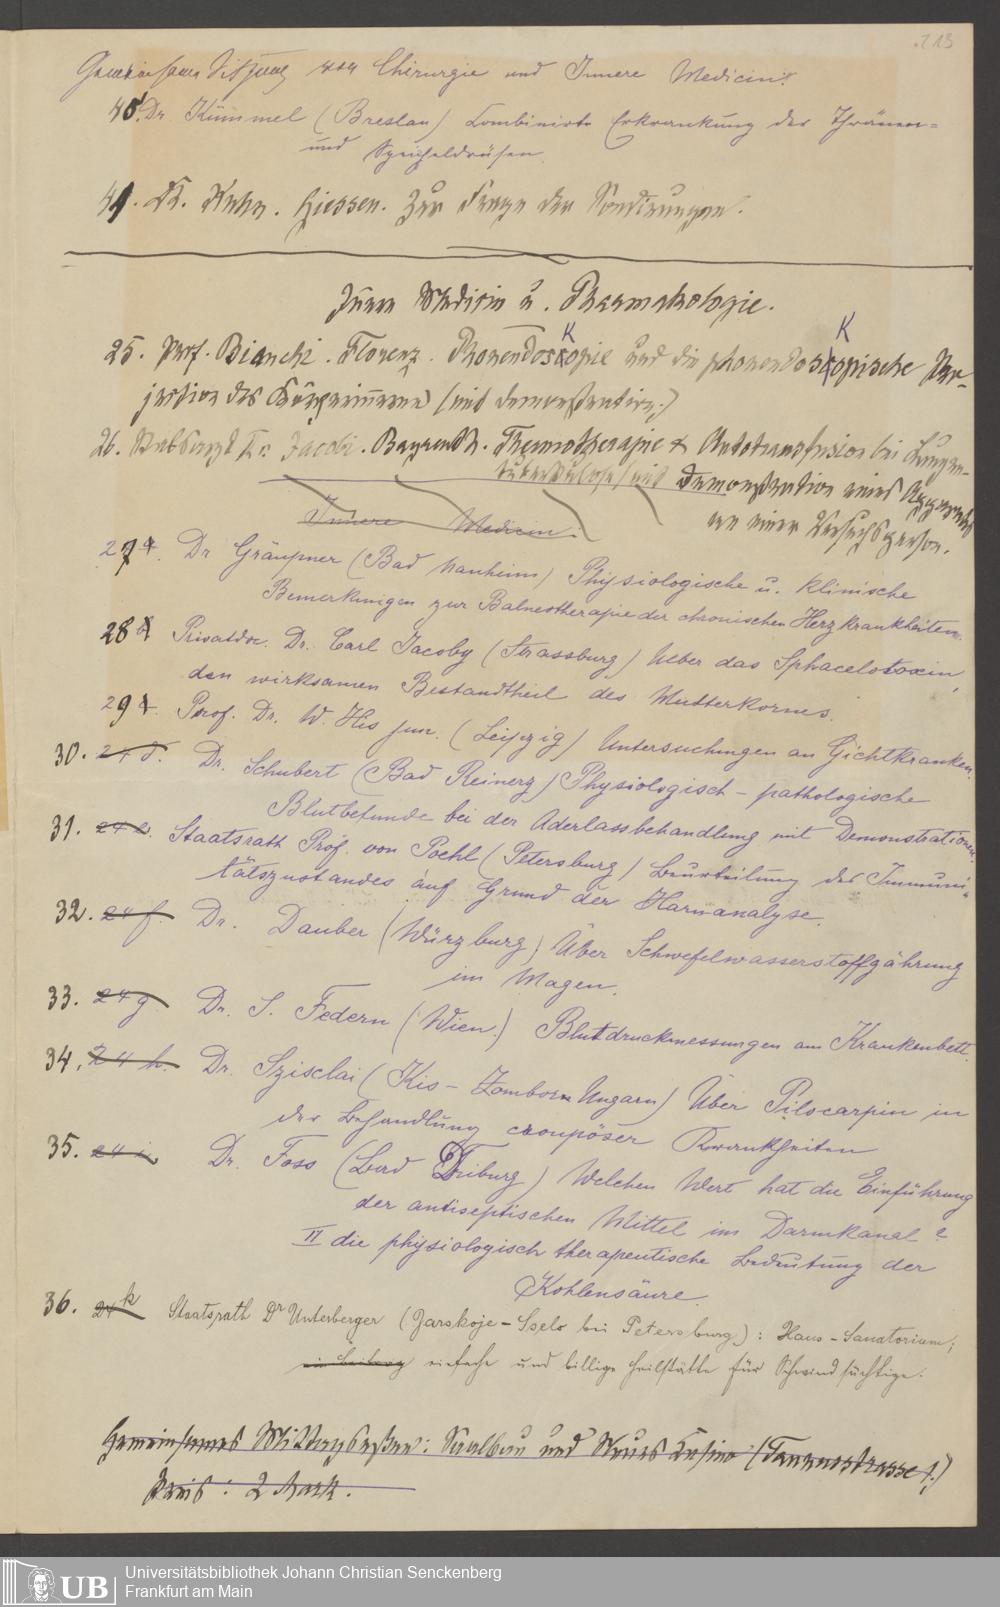 213
Gemeinsame Sitzung von Chirurgie und Innere Medicin:
40. Dr. Kümmel (Breslau) Combinirte Erkrankung der Thränen-
und Speicheldrüsen.
41. Dr. Kuhn. Giessen. Zur Frage der Sondirungen.
Innere Medicin u. Pharmakologie.
25. Prof. Bianchi. Florenz. Phonendoskopie und die phonendoskopische Pro-
jection des Körperinnern (mit Demonstration.)
26. Stabsarzt Dr. Jacobi. Bayreuth. Thermotherapie & Autotransfusion bei Lungen-
tuberkulose/mit Demonstration eines Apparates
an einer Versuchsperson.
Innere Medicin:
27. Dr Gräupner (Bad Nauheim) Physiologische u. klinische
Bemerkungen zur Balneotherapie der chronischen Herzkrankheiten.
28 Privatdoc. Dr. Carl Jacoby (Strassburg) Ueber das Sphacelotoxin,
den wirksamen Bestandtheil des Mutterkornes.
29 Prof. Dr. W. His jun. (Leipzig) Untersuchungen an Gichtkranken.
30. 24 d. Dr. Schubert (Bad Reinerz) Physiologisch-pathologische
Blutbefunde bei der Aderlassbehandlung mit Demonstrationen.
31. 24 e. Staatsrath Prof. von Poehl (Petersburg) Beurteilung des Immuni-
tätszustandes auf Grund der Harnanalyse.
32. 24 f. Dr. Dauber (Würzburg) Über Schwefelwasserstoffgährung
im Magen.
33. 24 g. Dr. S. Federn (Wien.) Blutdruckmessungen am Krankenbett.
34. 24 h. Dr. Szisclai (Kis-Zombor Ungarn) Über Pilocarpin in
der Behandlung croupöser Krankheiten
35. 24 i. Dr. Foss (Bad Driburg) Welchen Wert hat die Einführung
der antiseptischen Mittel im Darmkanal?
II die physiologisch therapeutische Bedeutung der
Kohlensäure.
36. 24 k Staatsrath Dr Unterberger (Zarskoje-Sselo bei Petersburg): Haus-Sanatorium;
einfache und billige Heilstätte für Schwindsüchtige.
Gemeinsames Mittagessen: Saalbau und Neues Casino (Taunusstrasse 1.)
Preis: 2 Mark.
UB Universitätsbibliothek Johann Christian Senckenberg
Frankfurt am Main